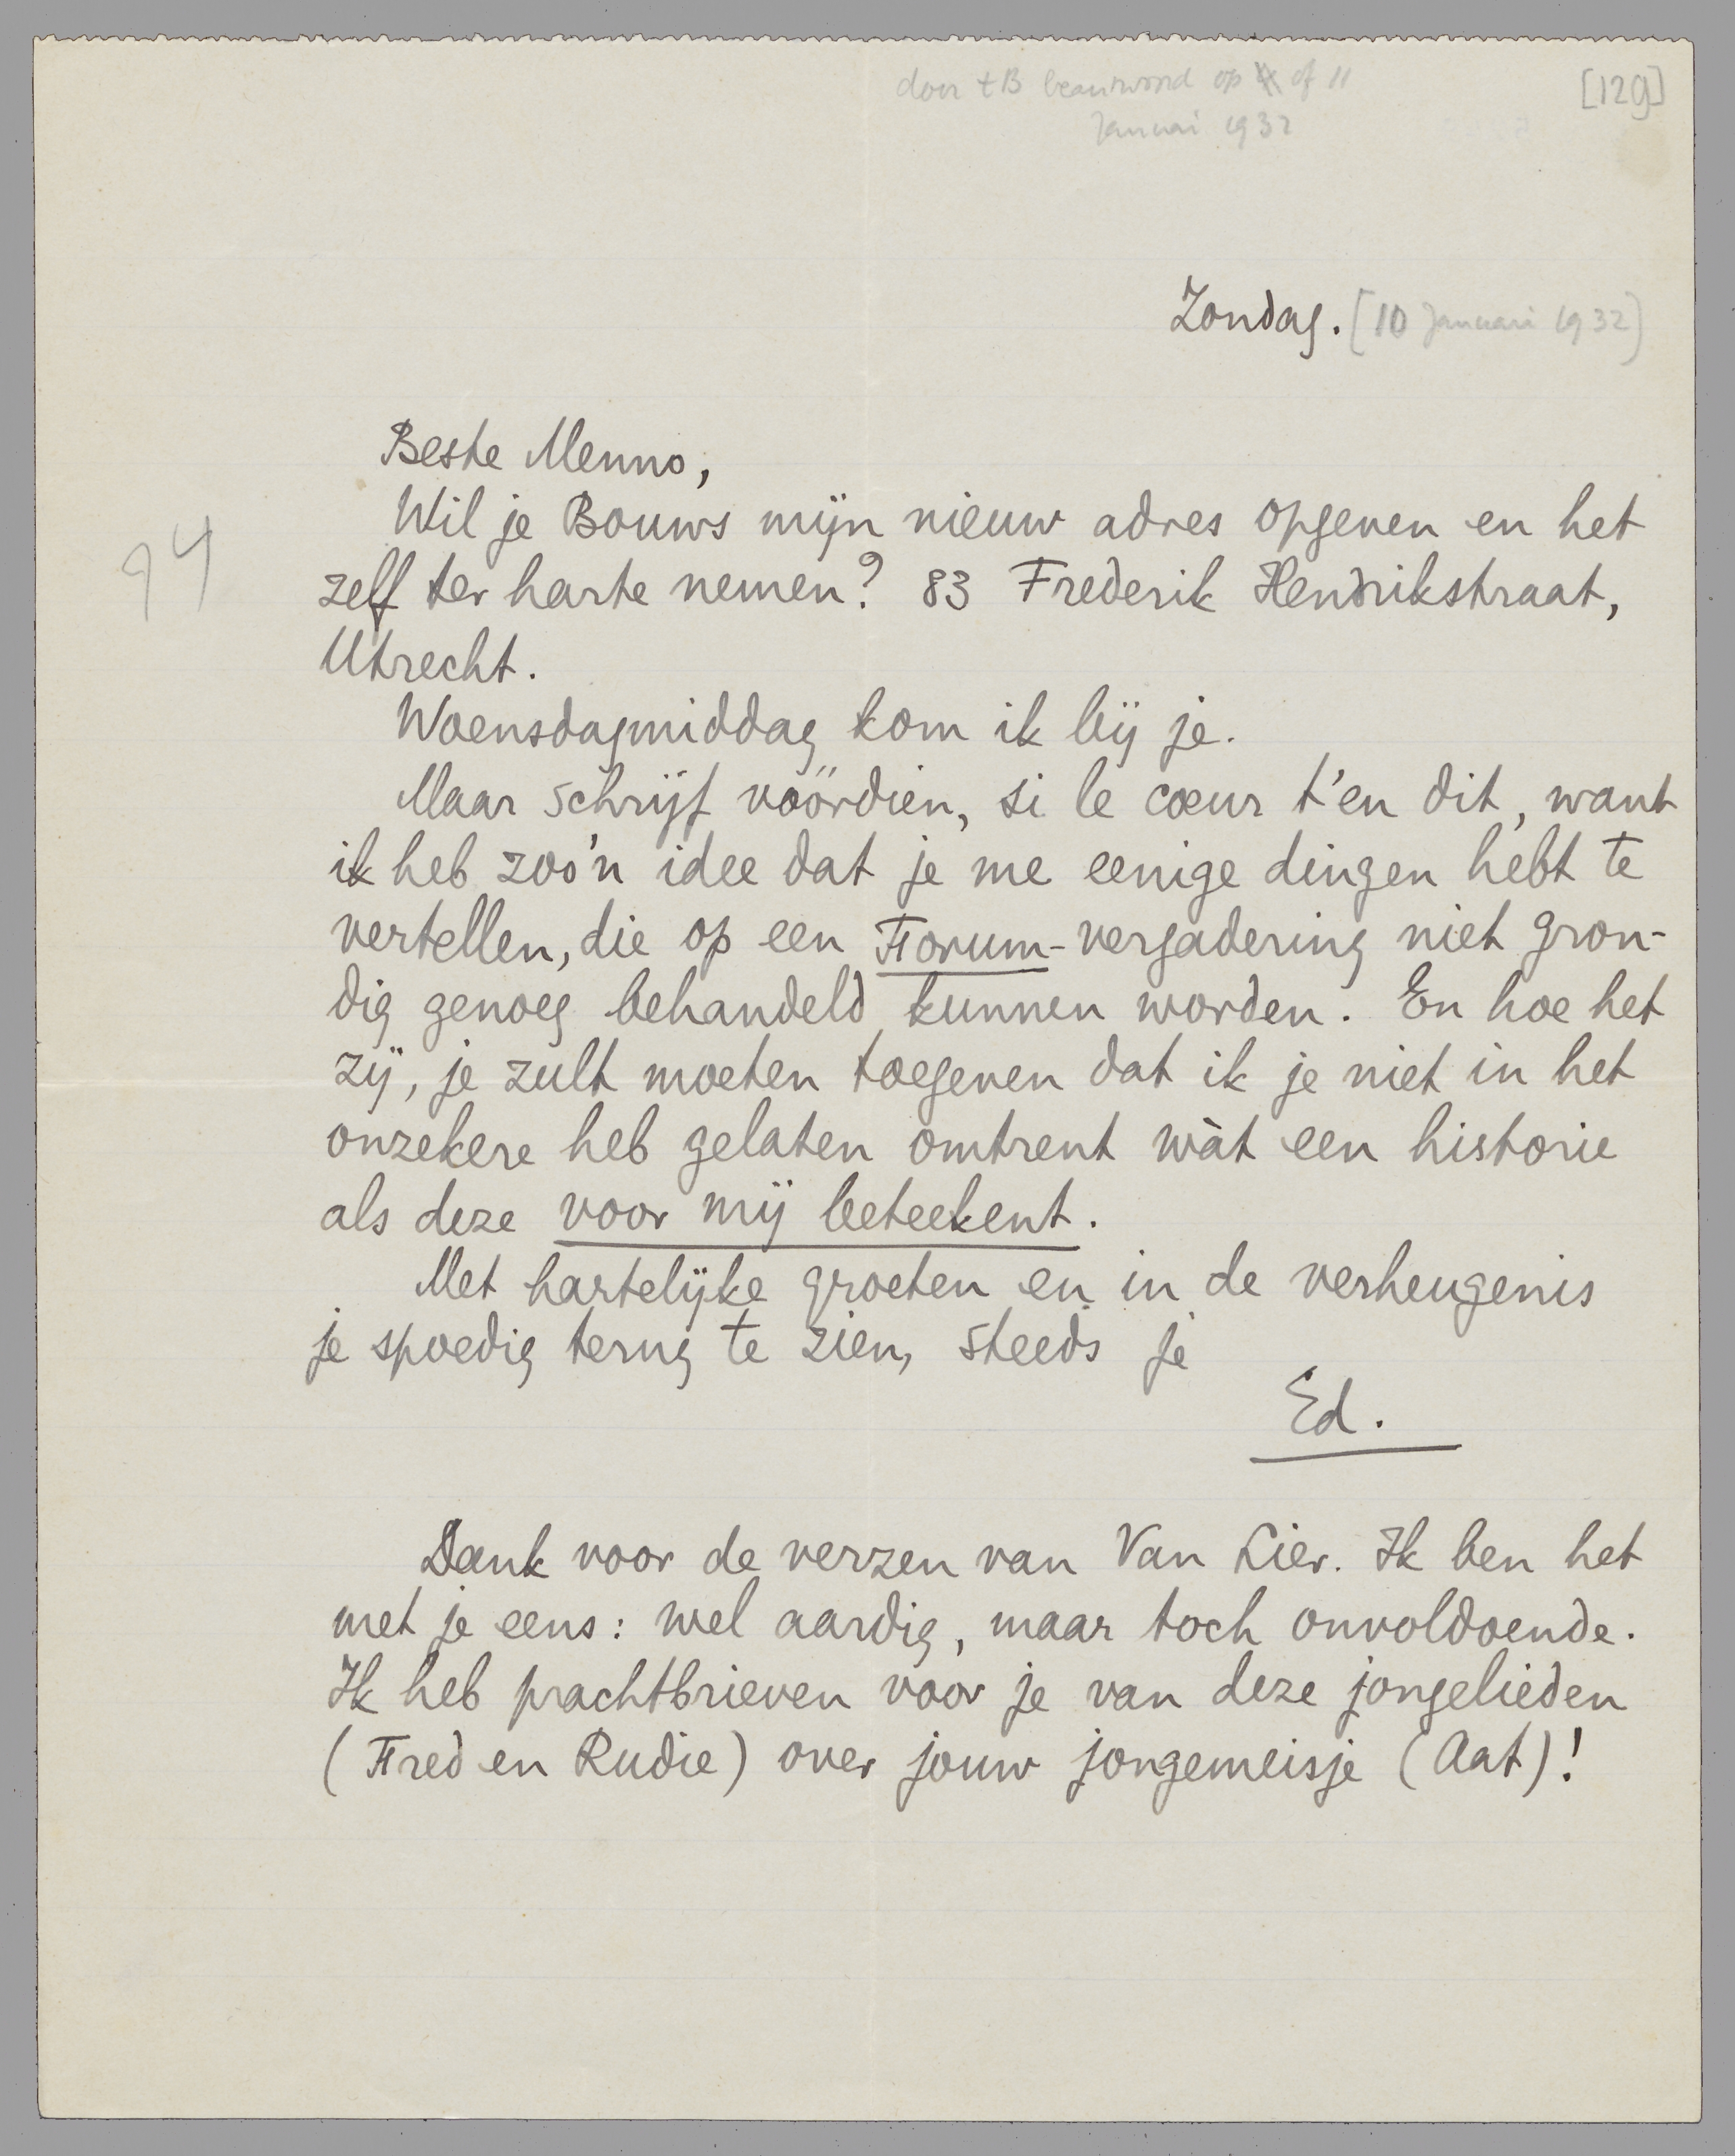 door tB beantwoord op of 11
[129]
Januari 1932
Zondag. [10 Januari 1932]
94
Beste Menno,
Wil je Bouws mijn nieuw adres opgeven en het
zelf ter harte nemen? 83 Frederik Hendrikstraat,
Utrecht.
Woensdagmiddag kom ik bij je.
Maar schrijf vóórdien, si le cœur t'en dit, want
ik heb zoo'n idee dat je me eenige dingen hebt te
vertellen, die op een Forum-vergadering niet gron-
dig genoeg behandeld kunnen worden. En hoe het
zij, je zult moeten toegeven dat ik je niet in het
onzekere heb gelaten omtrent wàt een historie
als deze voor mij beteekent.
Met hartelijke groeten en in de verheugenis
je spoedig terug te zien, steeds je
Ed.
Dank voor de verzen van Van Lier. Ik ben het
met je eens: wel aardig, maar toch onvoldoende.
Ik heb prachtbrieven voor je van deze jongelieden
(Fred en Rudie) over jouw jongemeisje (Aat)!